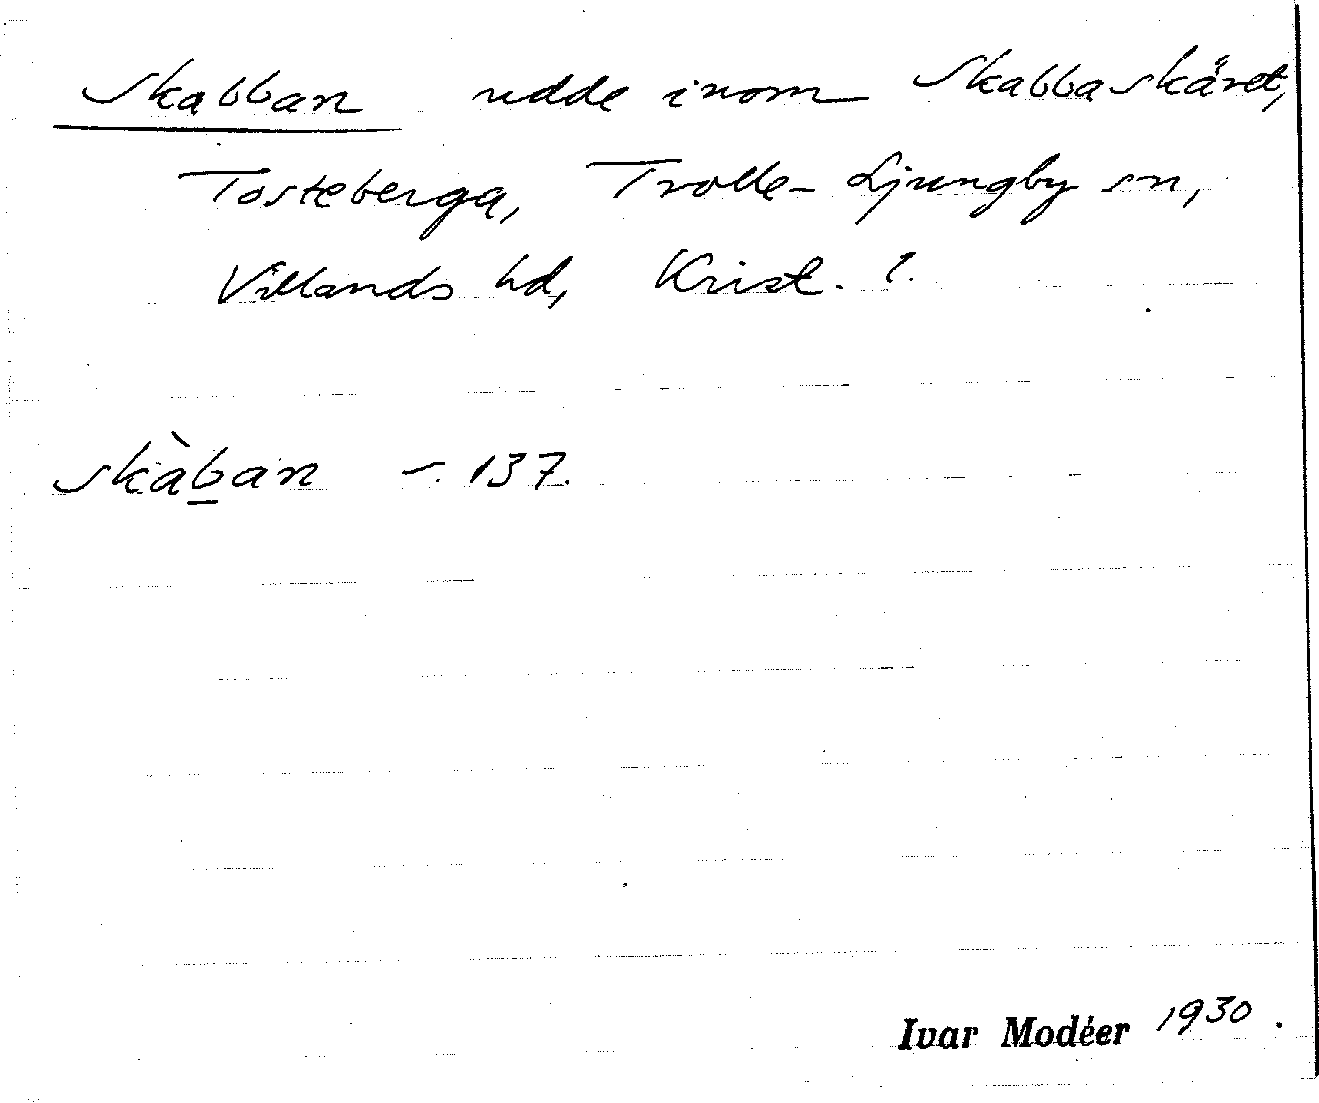 Skabban udde inom Skabbaskäret,
Tosteberga, Trolle-Ljungby sn,
Villands hd, Krist. l.
skàb̲an –. 137.
Ivar Modéer 1930.